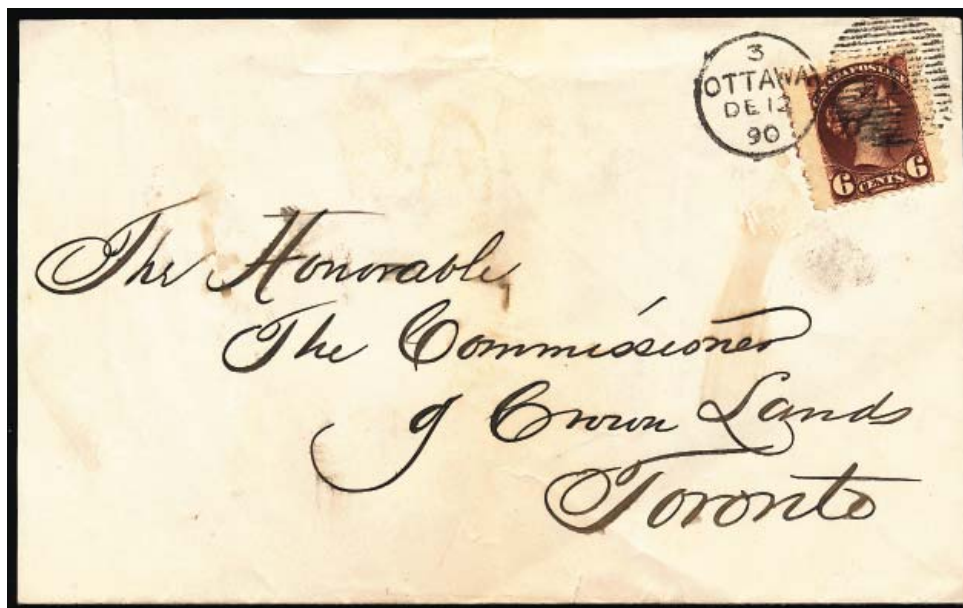 3
OTTAWA
DE 12
90
CANADA POSTAGE
6 CENTS 6
The Honorable
The Commissioner
of Crown Lands
Toronto